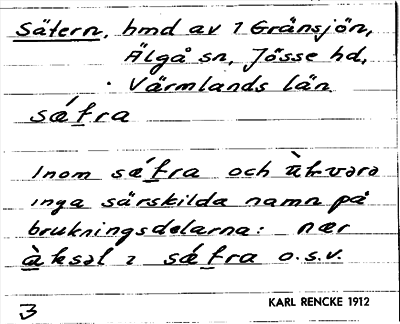 Sätern, hmd av 1 Gränsjön,
Älgå sn, Jösse hd,
Värmlands län
sǽtra
Inom sǽtra och
inga särskilda namn på
brukningsdelarna: nær
àksəl i sǽtra o.s.v.
3 KARL RENCKE 1912